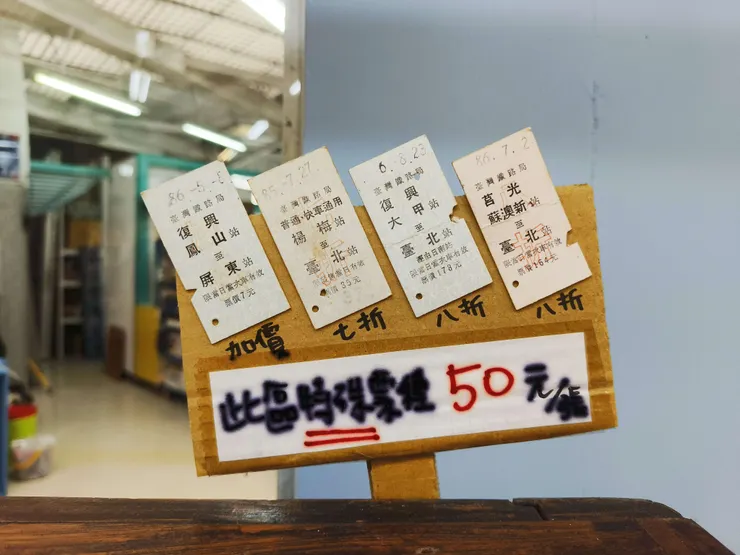 臺灣鐵路局
復興
鳳山站
至
屏東站
限當日當次車有效
票價7元
加價
臺灣鐵路局
普通・快車通用
楊梅站
至
臺北站
七折
臺灣鐵路局
復興
大甲站
至
臺北站
限當日當次車有效
票價178元
八折
86.7.2
臺灣鐵路局
莒光
蘇澳新站
至
臺北站
限當日當次車有效
票價164元
八折
此區特殊票種50元/張